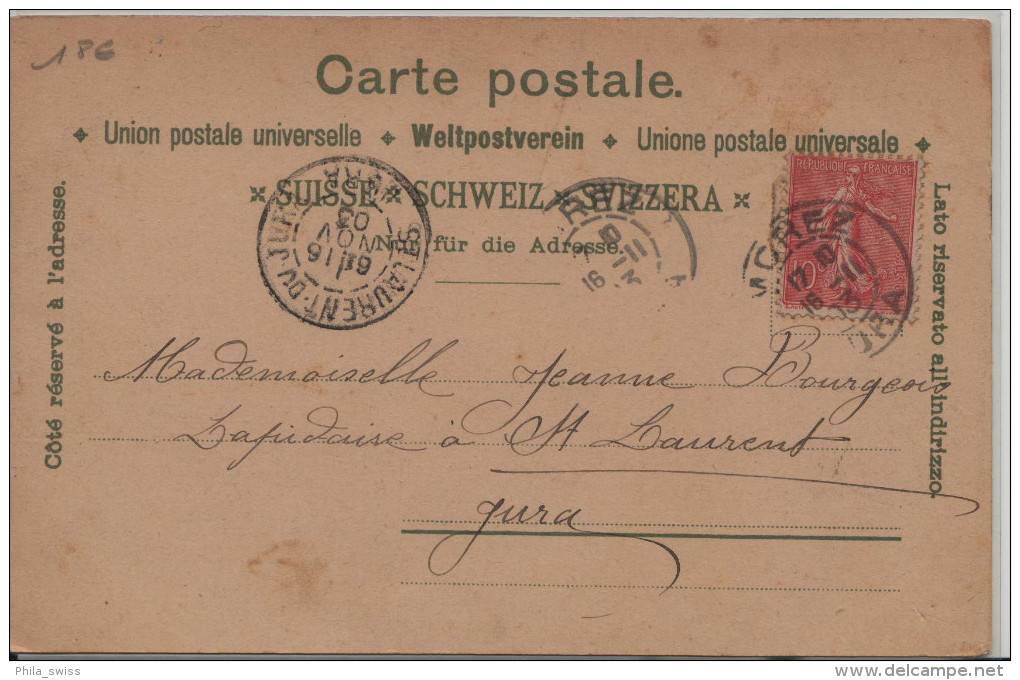 186
Carte postale.
✦ Union postale universelle ✦ Weltpostverein ✦ Unione postale universale ✦
SUISSE SCHWEIZ SVIZZERA
Nur für die Adresse.
Côté réservé à l'adresse.
Lato riservato all'indirizzo.
REPUBLIQUE FRANÇAISE
10
ST LAURENT-DU-JURA
16 NOV 03
MOREZ
JURA
16 11
Mademoiselle Jeanne Bourgeois
Lapidaise à St Laurent
Jura
Phila_swiss
delcampe.net